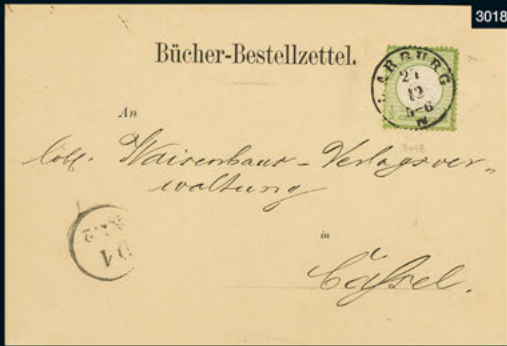 3018
Bücher-Bestellzettel.
ARBURG
12
5-6
N
An
3018
löbl. Waisenhaus-Verlagsver-
waltung
in
Caßel.